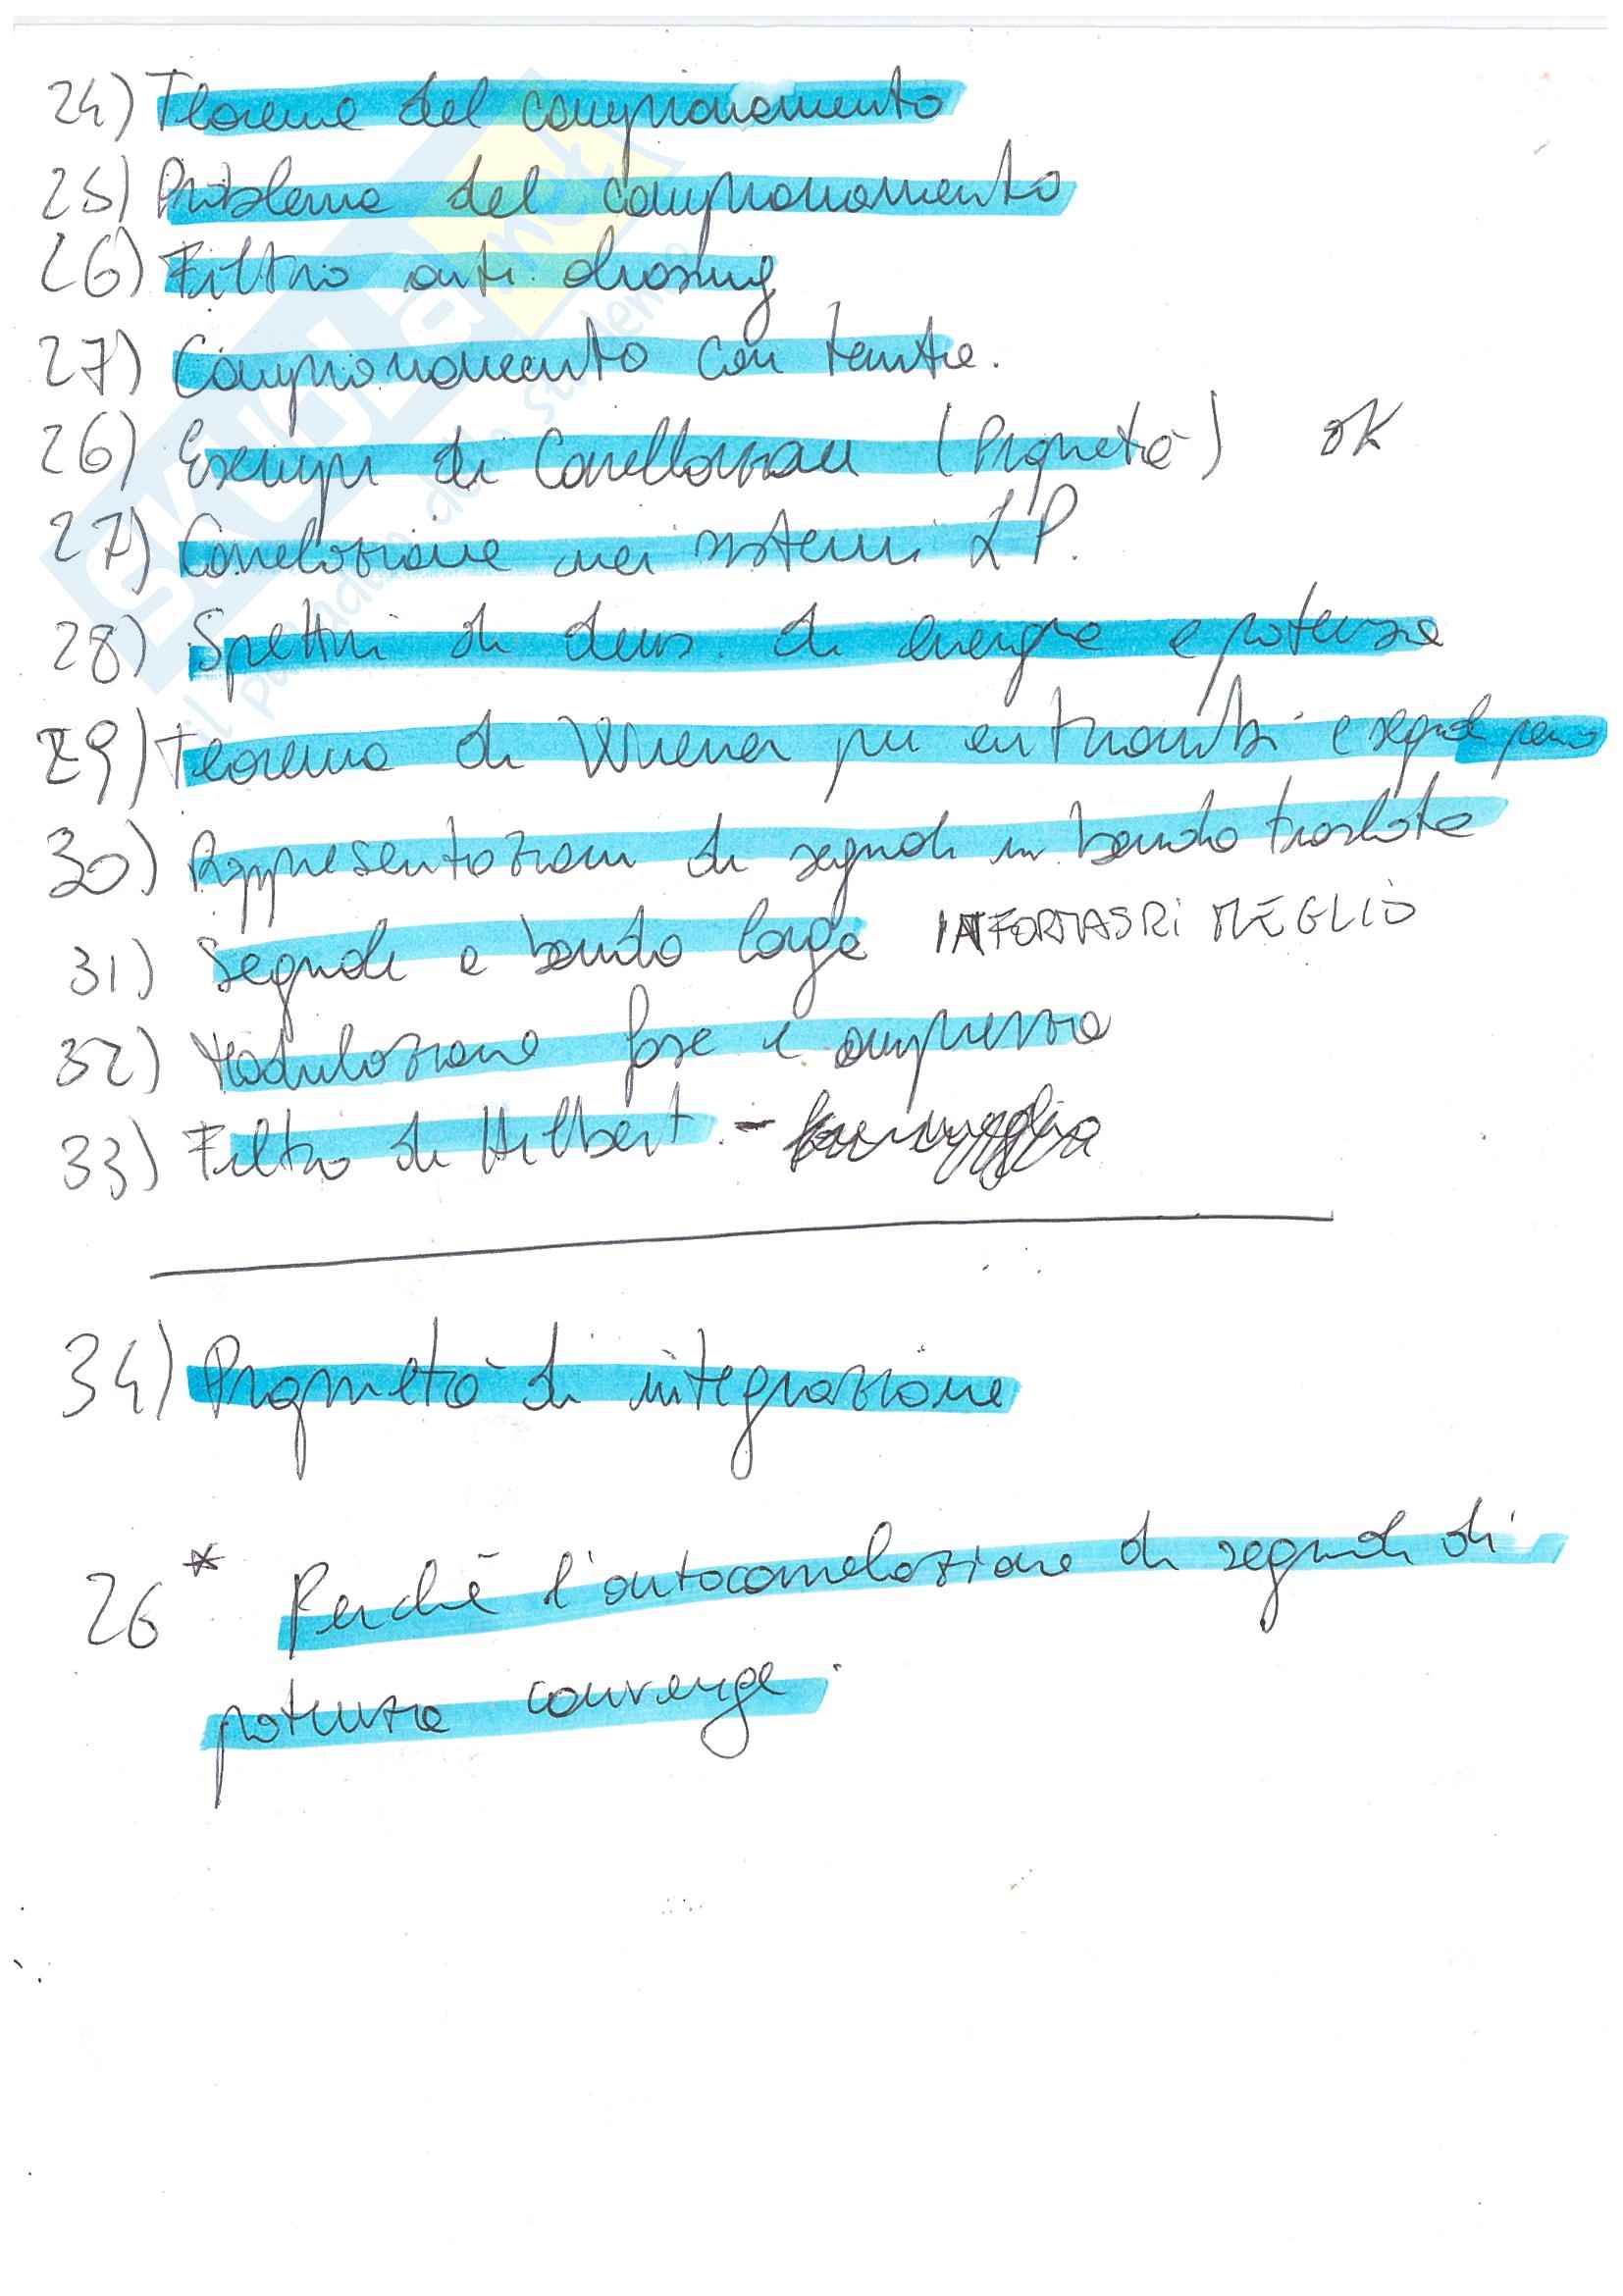 24) Teorema del campionamento
25) Problema del campionamento
26) Filtro anti aliasing
27) Campionamento con tenuta.
26) Esempi di Correlazioni (Proprietà) OK
27) Correlazione nei sistemi LP.
28) Spettri di dens. di energia e potenza
29) Teorema di Wiener per entrambi e segnali perio
30) Rappresentazioni di segnali in banda traslata
31) Segnali a banda larga INFORMASRI MEGLIO
32) Modulazione fase e ampiezza
33) Filtro di Hilbert. -
34) Proprietà di integrazione
26* Perchè l'autocorrelazione di segnali di
potenza converge.
SKUOLA.net
il paradiso dello studente